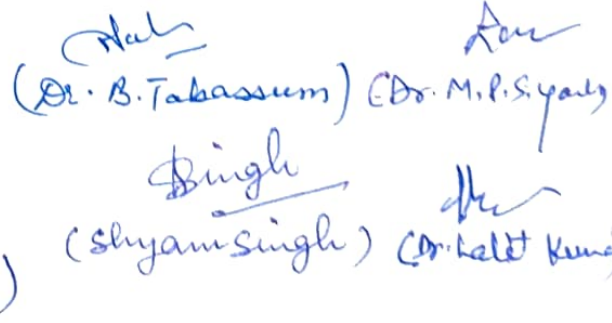 (Dr. B. Tabassum) (Dr. M. P. S. Yadav
Singh
(Shyam Singh) (Dr. Lalit Kuma
)